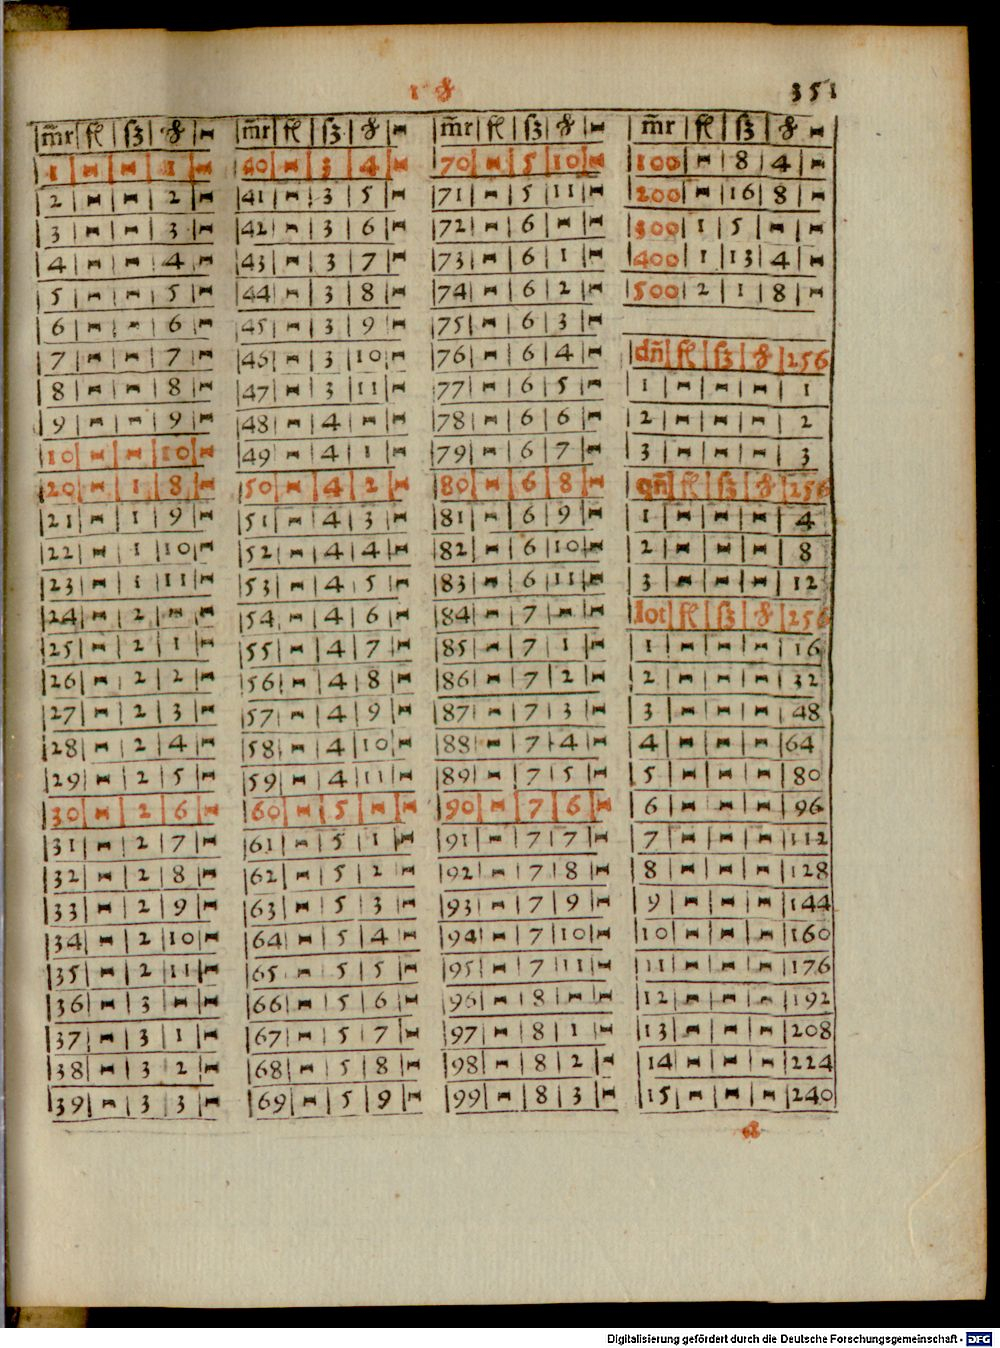 1 ₰ 351
m̃r fl ſʒ ₰ - m̃r fl ſʒ ₰ - m̃r fl ſʒ ₰ - m̃r fl ſʒ ₰ -
1 - - 1 - 40 - 3 4 - 70 - 5 10 - 100 - 8 4 -
2 - - 2 - 41 - 3 5 - 71 - 5 11 - 200 - 16 8 -
3 - - 3 - 42 - 3 6 - 72 - 6 - - 300 1 5 - -
4 - - 4 - 43 - 3 7 - 73 - 6 1 - 400 1 13 4 -
5 - - 5 - 44 - 3 8 - 74 - 6 2 - 500 2 1 8 -
6 - - 6 - 45 - 3 9 - 75 - 6 3 -
7 - - 7 - 46 - 3 10 - 76 - 6 4 - dñ fl ſʒ ₰ 256
8 - - 8 - 47 - 3 11 - 77 - 6 5 - 1 - - - 1
9 - - 9 - 48 - 4 - - 78 - 6 6 - 2 - - - 2
10 - - 10 - 49 - 4 1 - 79 - 6 7 - 3 - - - 3
20 - 1 8 - 50 - 4 2 - 80 - 6 8 - qñ fl ſʒ ₰ 256
21 - 1 9 - 51 - 4 3 - 81 - 6 9 - 1 - - - 4
22 - 1 10 - 52 - 4 4 - 82 - 6 10 - 2 - - - 8
23 - 1 11 - 53 - 4 5 - 83 - 6 11 - 3 - - - 12
24 - 2 - - 54 - 4 6 - 84 - 7 - - lot fl ſʒ ₰ 256
25 - 2 1 - 55 - 4 7 - 85 - 7 1 - 1 - - - 16
26 - 2 2 - 56 - 4 8 - 86 - 7 2 - 2 - - - 32
27 - 2 3 - 57 - 4 9 - 87 - 7 3 - 3 - - - 48
28 - 2 4 - 58 - 4 10 - 88 - 7 4 - 4 - - - 64
29 - 2 5 - 59 - 4 11 - 89 - 7 5 - 5 - - - 80
30 - 2 6 - 60 - 5 - - 90 - 7 6 - 6 - - - 96
31 - 2 7 - 61 - 5 1 - 91 - 7 7 - 7 - - - 112
32 - 2 8 - 62 - 5 2 - 92 - 7 8 - 8 - - - 128
33 - 2 9 - 63 - 5 3 - 93 - 7 9 - 9 - - - 144
34 - 2 10 - 64 - 5 4 - 94 - 7 10 - 10 - - - 160
35 - 2 11 - 65 - 5 5 - 95 - 7 11 - 11 - - - 176
36 - 3 - - 66 - 5 6 - 96 - 8 - - 12 - - - 192
37 - 3 1 - 67 - 5 7 - 97 - 8 1 - 13 - - - 208
38 - 3 2 - 68 - 5 8 - 98 - 8 2 - 14 - - - 224
39 - 3 3 - 69 - 5 9 - 99 - 8 3 - 15 - - - 240
₰
Digitalisierung gefördert durch die Deutsche Forschungsgemeinschaft - DFG